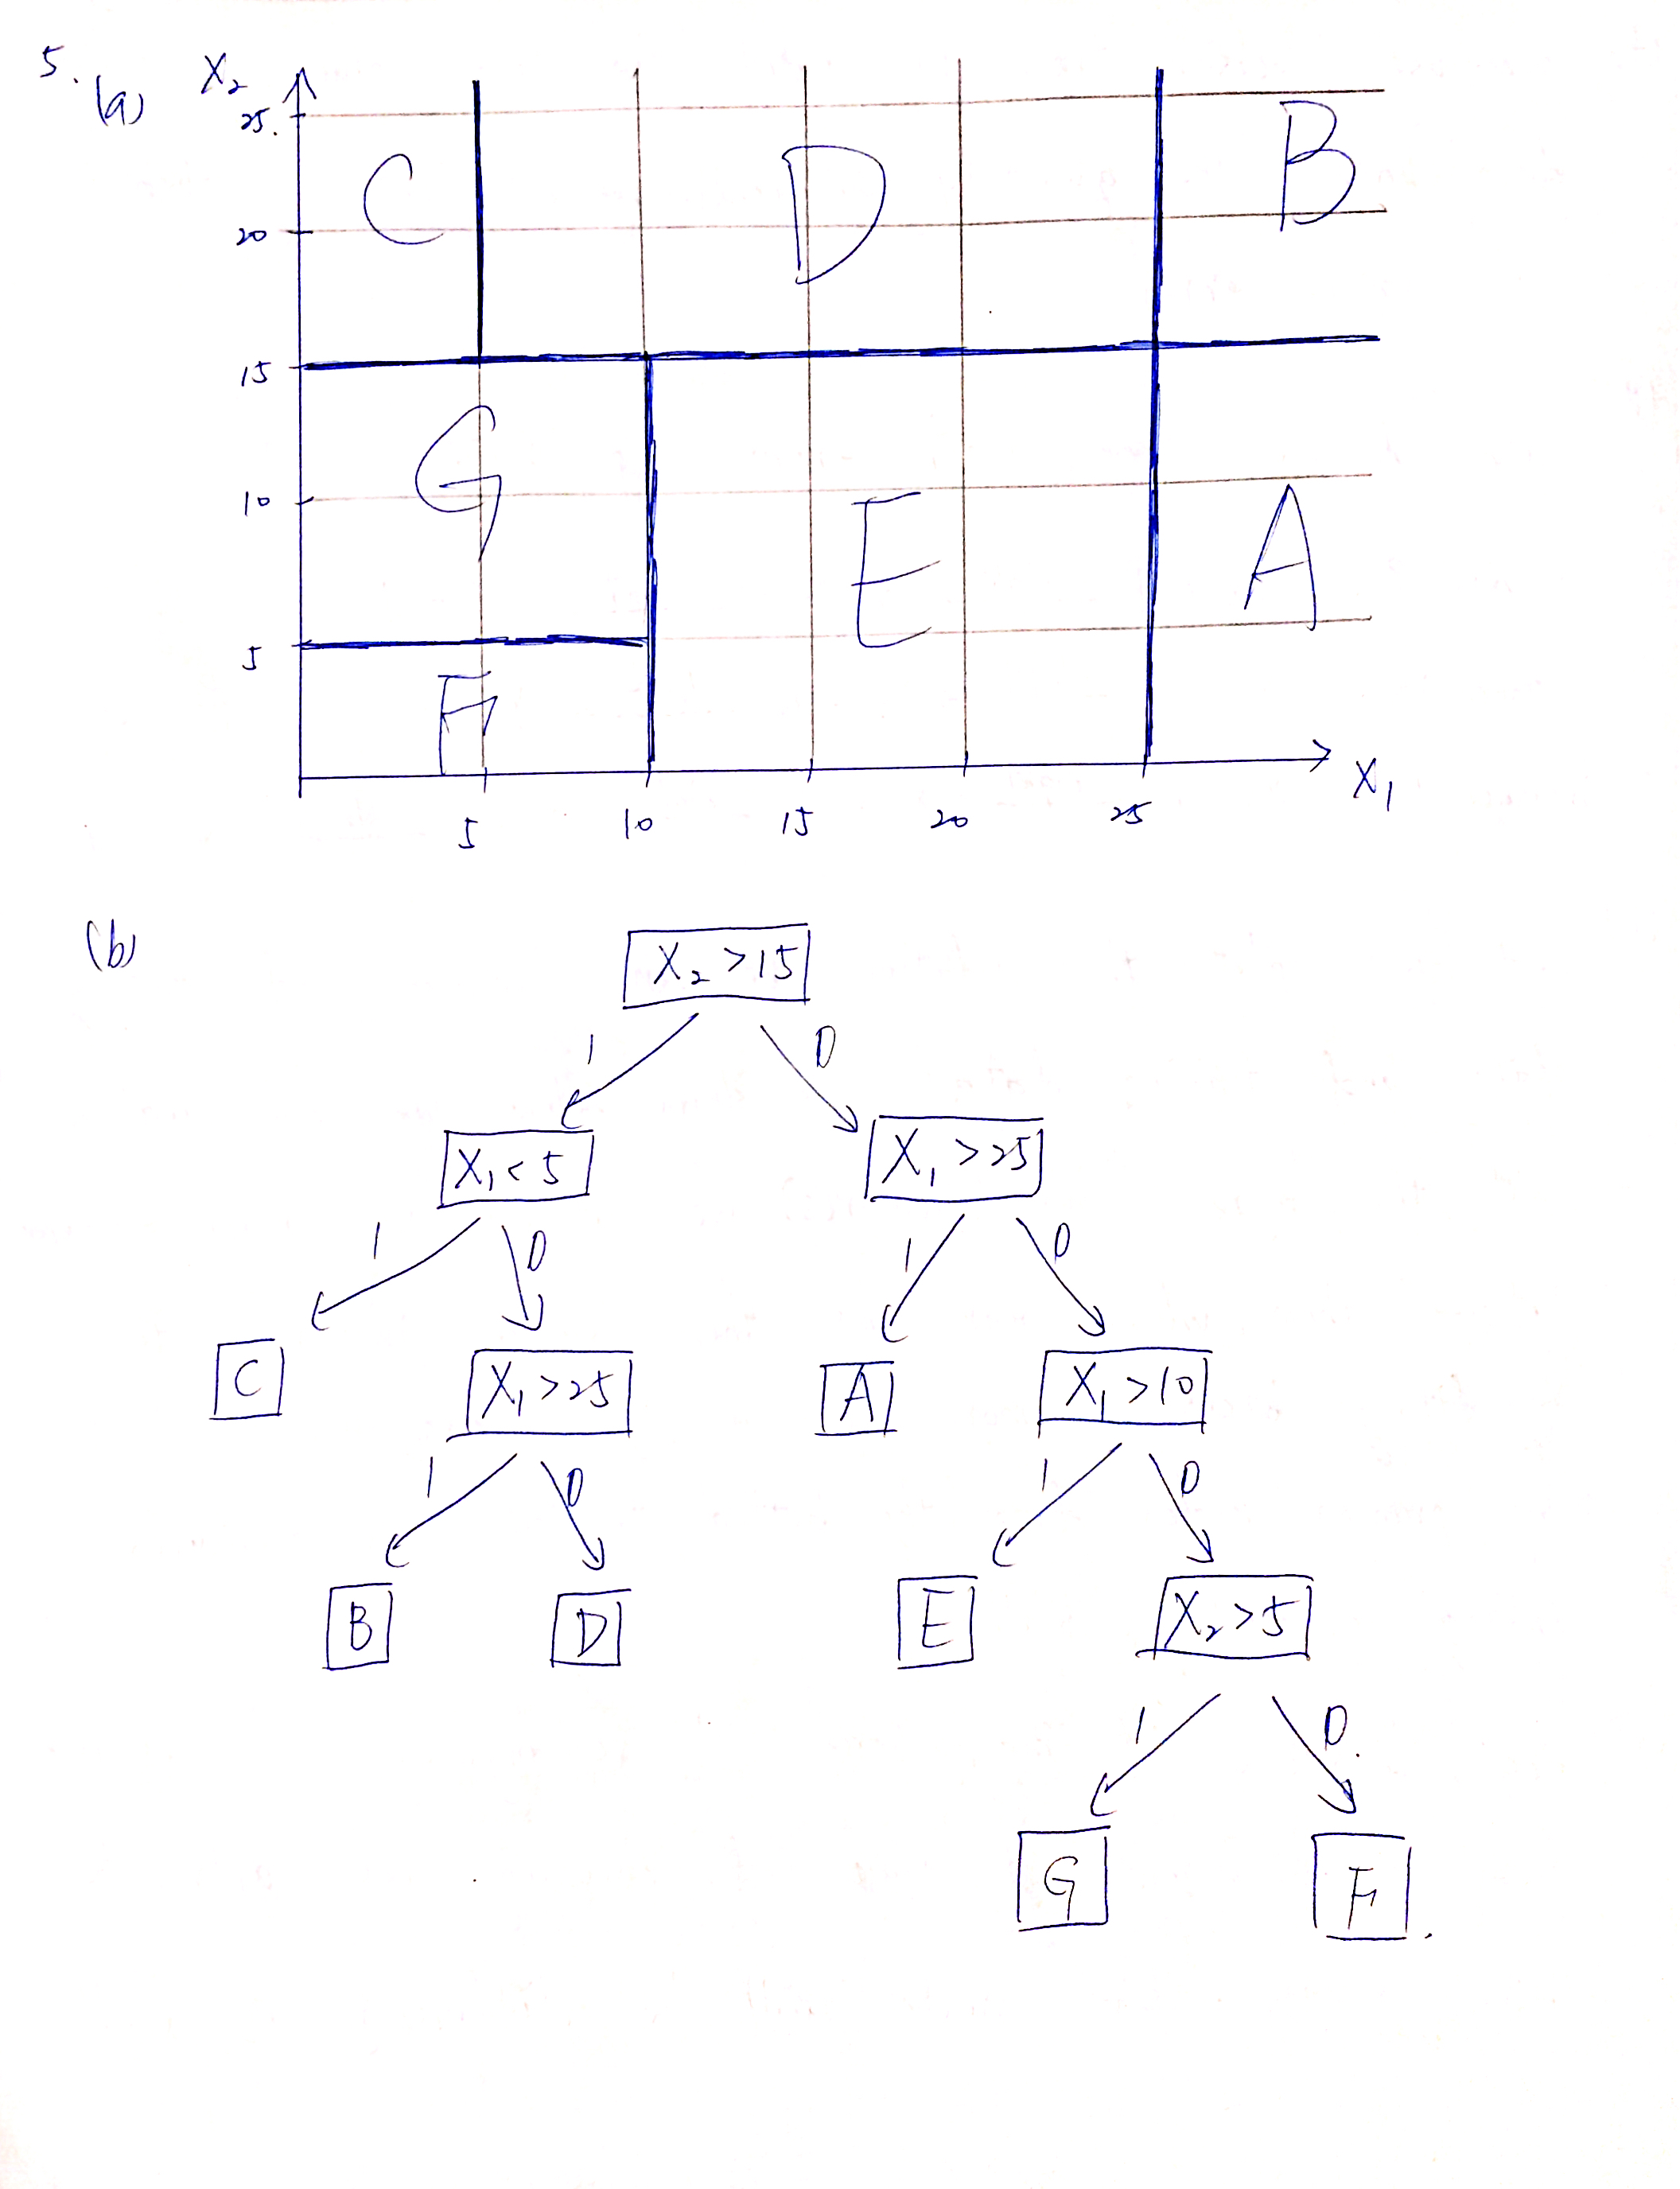 5.
(a)
X₂
25.
C
D
B
20
15
G
10
E
A
5
F
X₁
5
10
15
20
25
(b)
X₂ >15
1
0
X₁<5
X₁ >25
1
0
1
0
C
X₁ >25
A
X₁ >10
1
0
1
0
B
D
E
X₂>5
1
0.
G
F.